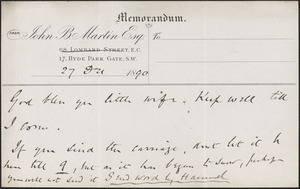 Memorandum.
FROM John B. Martin Esq. To
68 LOMBARD STREET, E.C.
17, HYDE PARK GATE, S.W.
27 Dec 1890
God bless you little wife. Keep well till
I come.
If you send the carriage, dont let it be
here till 9, but as it has begun to snow, perhaps
you will not send it. Send word by